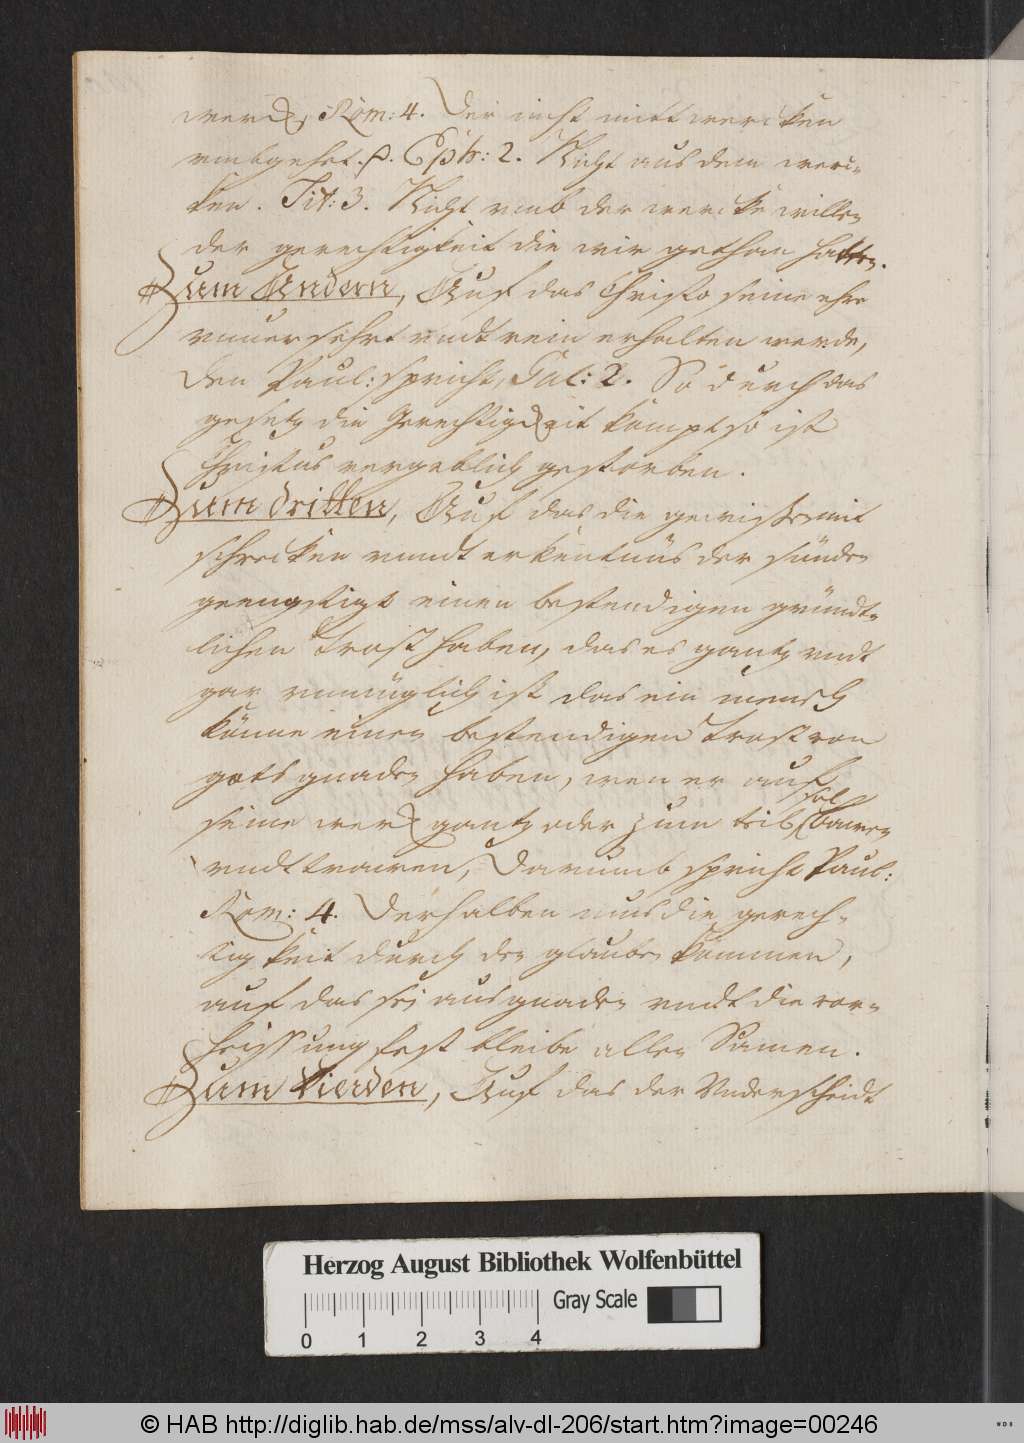 werck, Röm: 4. Der nicht mitt wercken
vmbgehet. p. Eph: 2. Nicht aus dem werc-
ken. Tit: 3. Nicht vmb der wercke willen
der gerechtigkeit die wir gethan hatten.
Zum Andern, Auf das Christo seine ehre
vnuersehrt vndt rein erhalten werde,
den Paul: spricht, Gal: 2. So durch das
gesetz die Gerechtigkeit kompt so ist
Christus vergeblich gestorben.
Zum dritten, Auf das die gewissen mit
schrecken vnndt erkentnüs der sünden
geengstigt einen bestendigen gründt-
lichen trost haben, das es gantz vndt
gar vnmüglich ist das ein mensch
könne einen bestendigen trost von
gots gnaden haben, wen er auf
seine werck gantz oder zum teil sol bawen
vndt trawen, Darumb spricht Paul:
Rom: 4. Derhalben mus die gerech-
tigkeit durch den glauben kommen,
auf das sej aus gnaden vndt die vor-
heissung fest bleibe allen Samen.
Zum Vierden, Auf das der Vnderscheidt
Herzog August Bibliothek Wolfenbüttel
0 1 2 3 4 Gray Scale
© HAB http://diglib.hab.de/mss/alv-dl-206/start.htm?image=00246